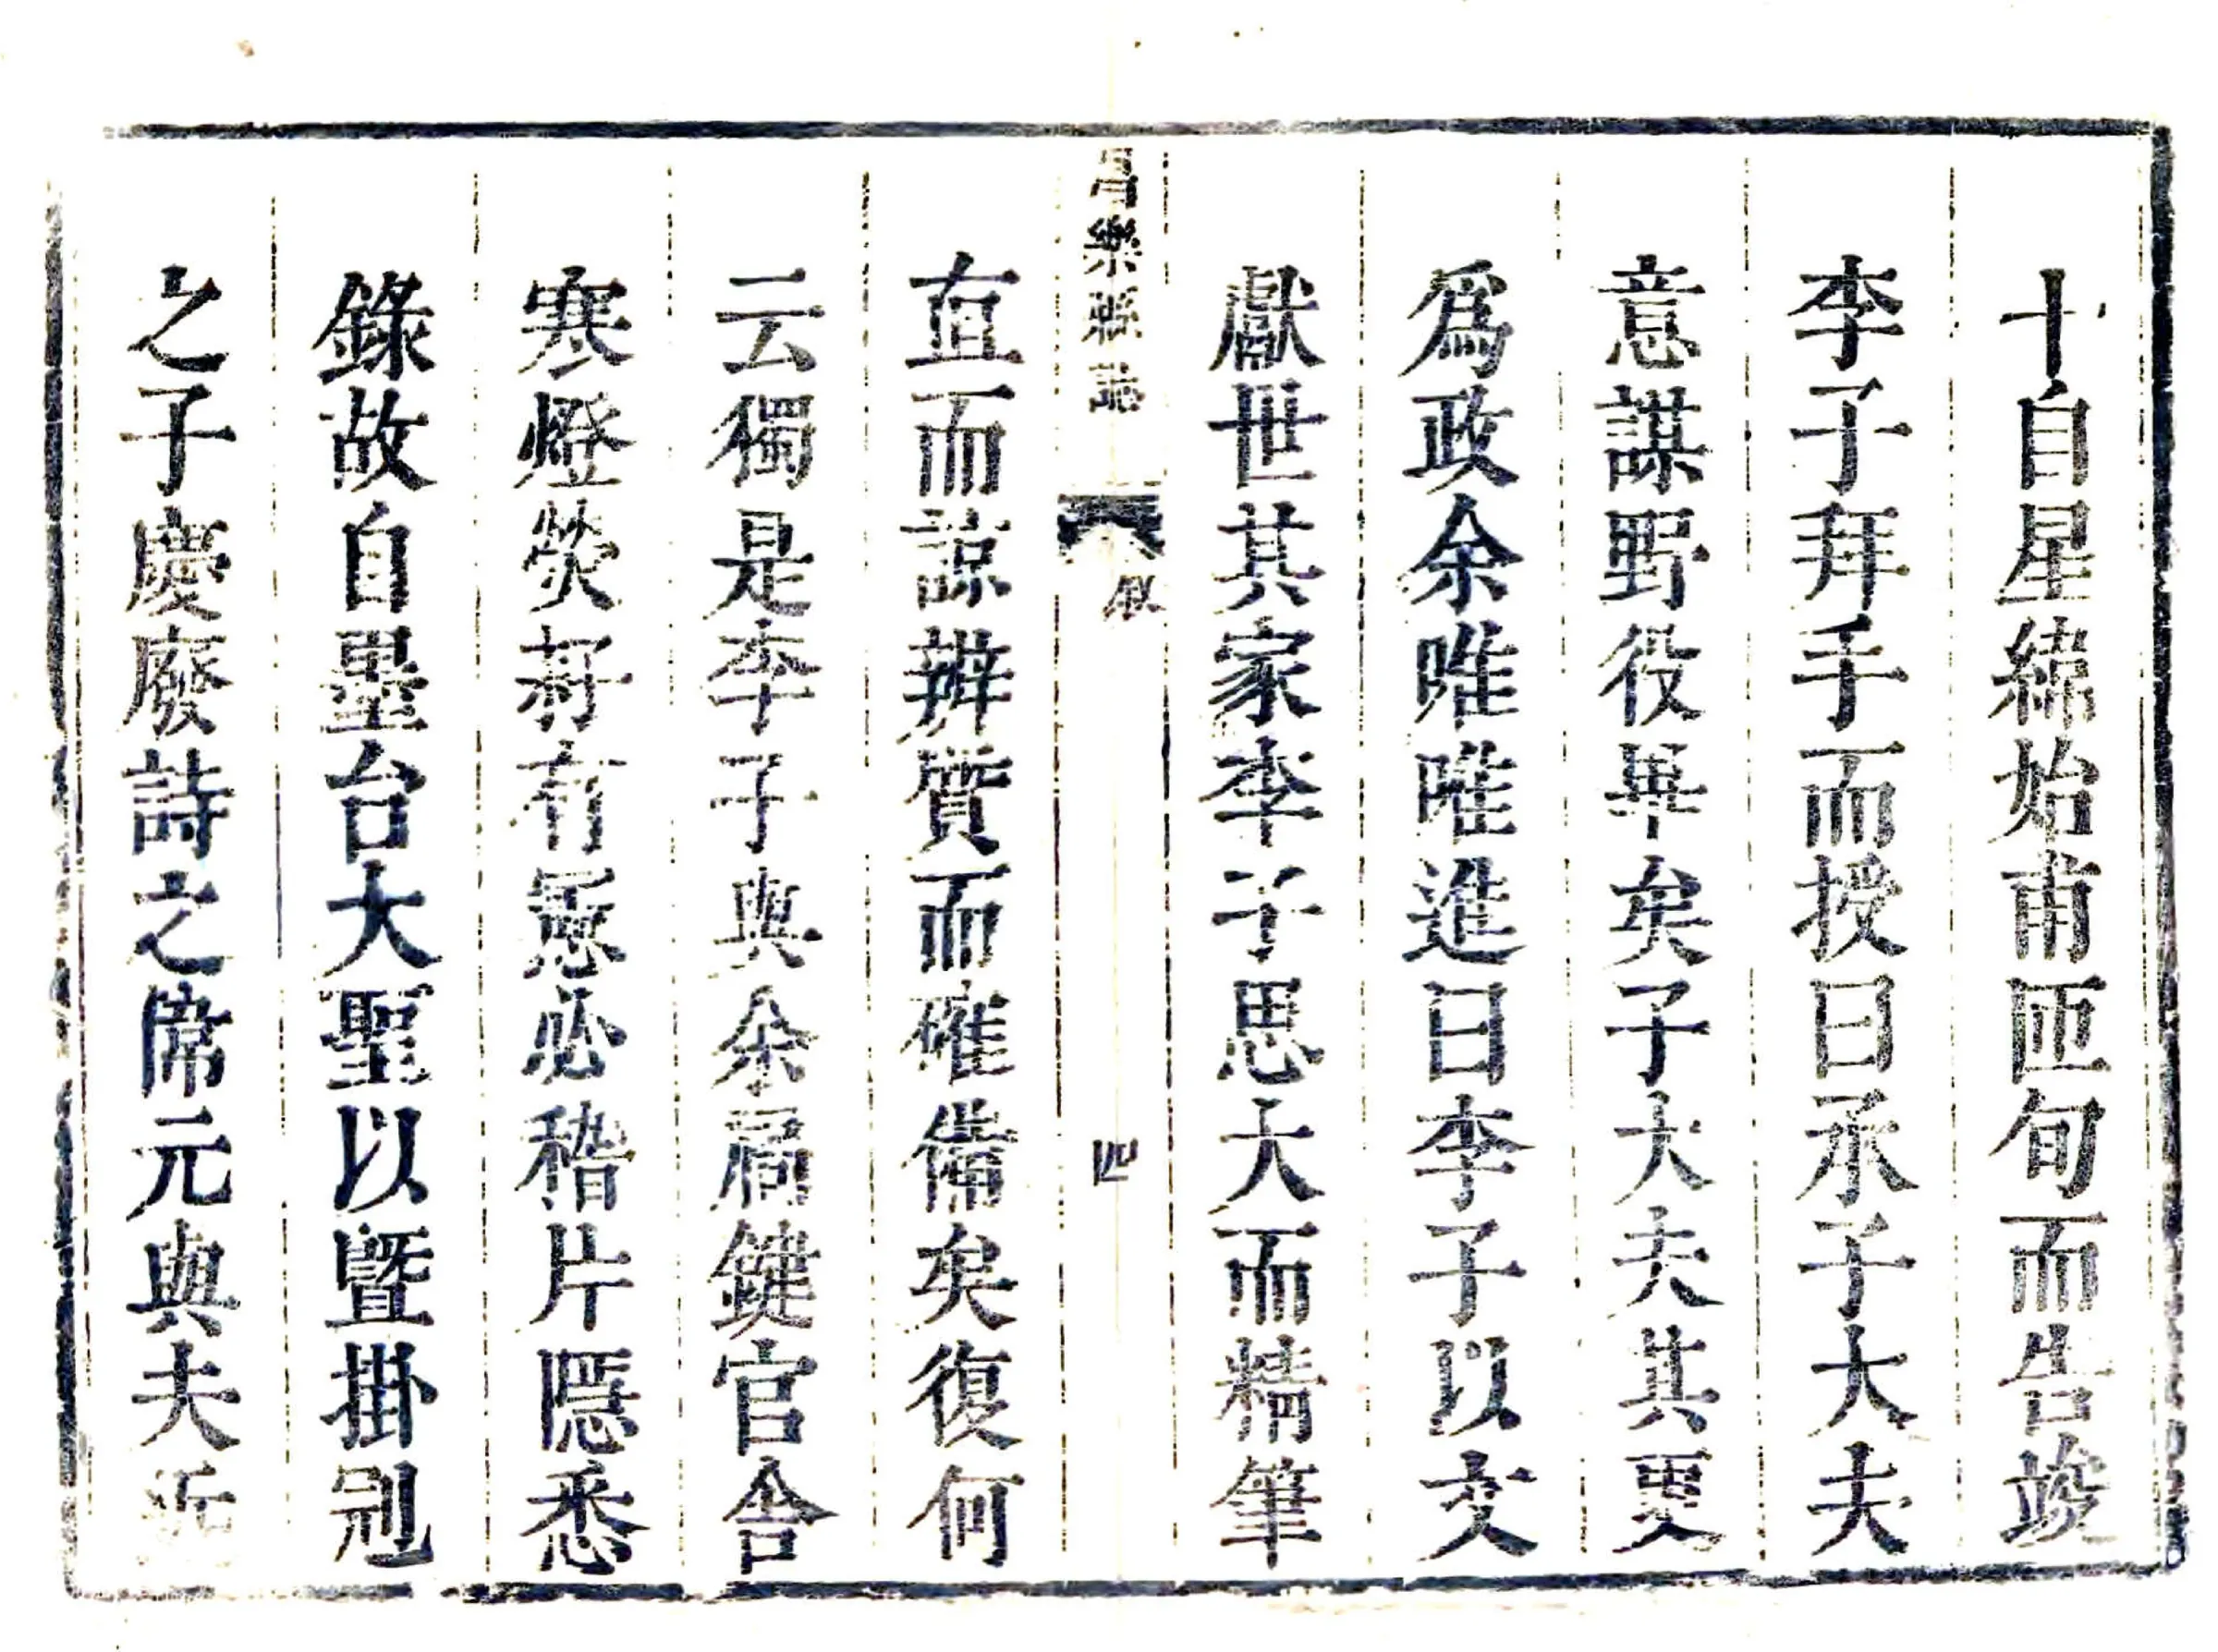 十自星緯始甫匝旬而告竣
李子拜手而授曰承子大夫
意謀野役畢矣子大夫其更
爲政余唯唯進曰李子以文
獻世其家李子思大而精筆
昌樂縣誌
敘
四
直而諒辨質而確備矣復何
云獨是李子與余扃鍵官舎
寒燈熒熒有冤必稽片隱悉
錄故自墨台大聖以曁掛冠
之子慶廢詩之儔元與夫近